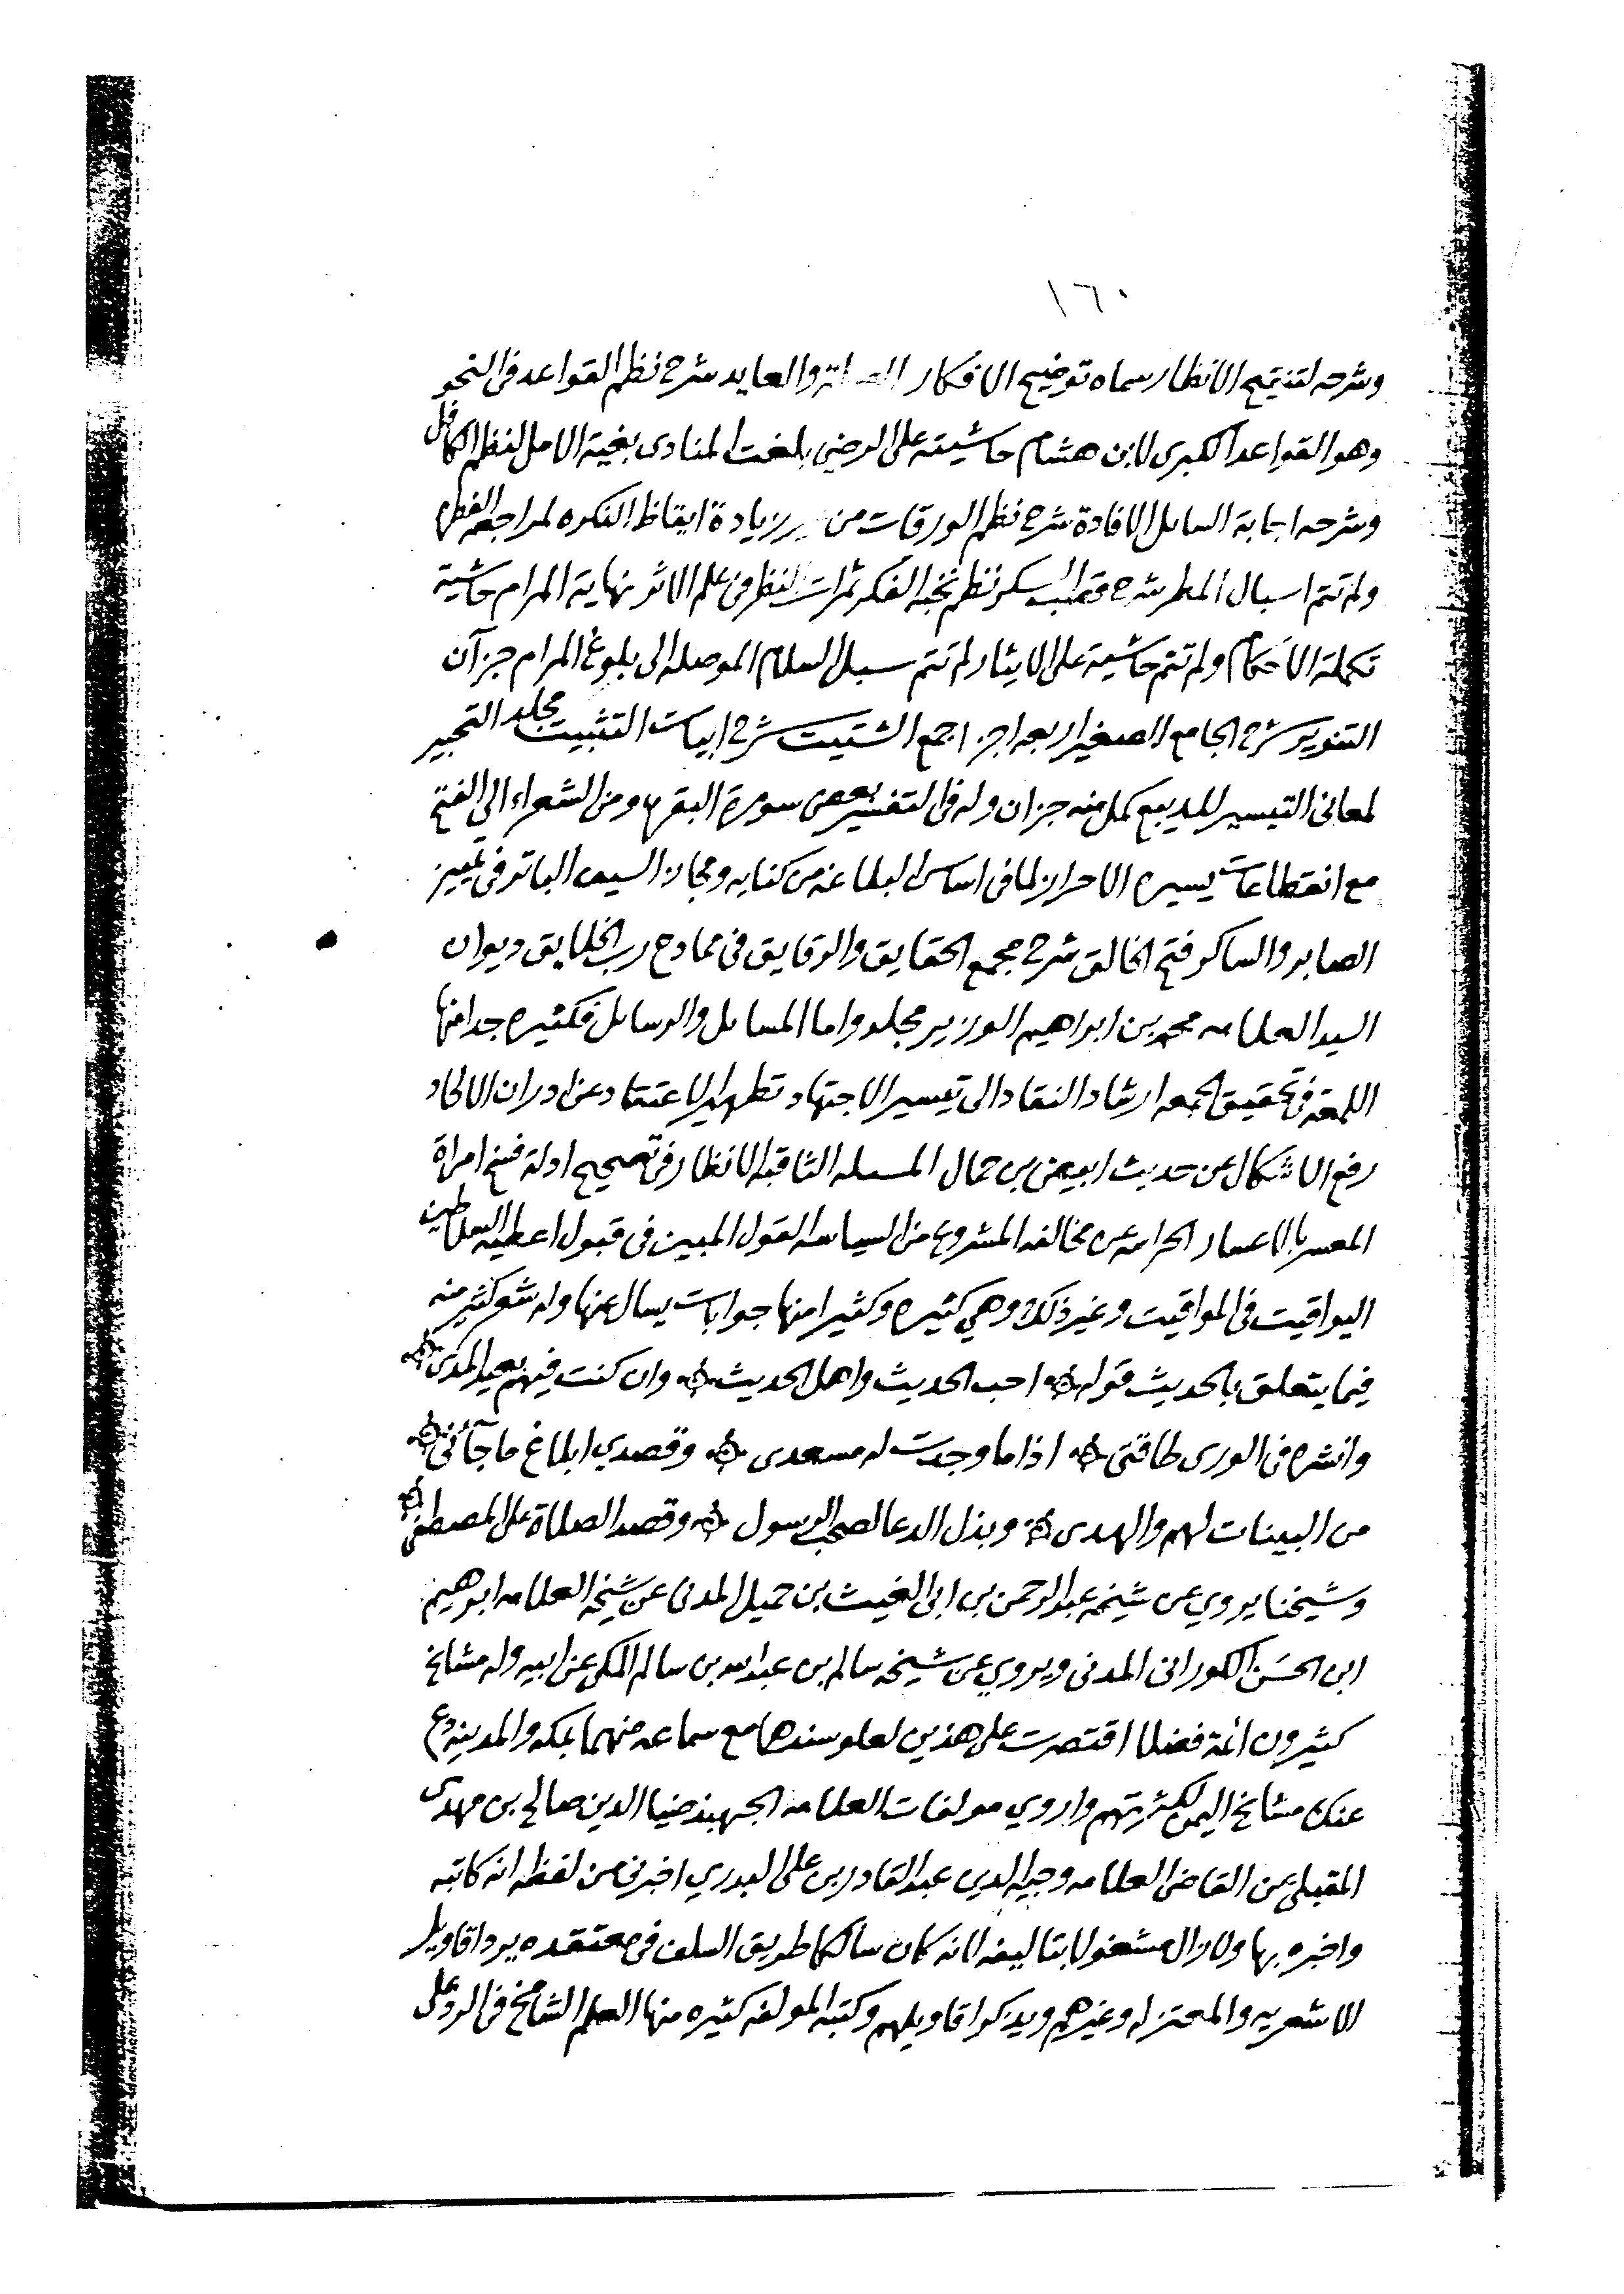 ١٦٠
وشرحه لتنقيح الانظار سماه توضيح الافكار الصلة والعايد شرح نظم القواعد في النحو
وهو القواعد الكبرى لابن هشام حاشيته على الرضي بلغت المنادى بغية الامل لنظم الكافل
وشرحه اجابة السايل الافادة شرح نظم الورقات من زيادة ايقاظ الفكره لمراجعه الفطره
ولم تتم اسبال المطر شرح قصب السكر نظم نخبه الفكر ثمرات النظر في علم الاثر نهاية المرام حاشية
تكملة الاحكام ولم تتم حاشية على الايثار لم تتم سبل السلام الموصله الى بلوغ المرام جزآن
التنوير شرح الجامع الصغير اربعه اجزا جمع الشتيت شرح ابيات التثبيت مجلد التحبير
لمعاني التيسير للديبع كمل منه جزان وله في التفسير بعض سورة البقره ومن الشعراء الى الفتح
مع انقطاعات يسيره الاحراز لما في اساس البلاغه من كنايه ومجاز السيف الباتر في تمييز
الصابر والشاكر فتح الخالق شرح مجمع الحقايق والرقايق في ممادح رب الخلايق ديوان
السيد العلامه محمد بن ابراهيم الوزير مجلد واما المسايل والرسايل فكثيره جدا منها
اللمعه في تحقيق الجمعه ارشاد النقاد الى تيسير الاجتهاد تطهير الاعتقاد عن ادران الالحاد
رفع الاشكال عن حديث ابيض بن حمال المسله الثاقبه الانظار في تصحيح ادلة فسخ امراة
المعسر بالاعسار الحراسه عن مخالفه المشروع من السياسه القول المبين في قبول اعطيه السلاطين
اليواقيت في المواقيت وغير ذلك وهي كثيره وكثير امنها جوابات يسال عنها وله شعر كثير منه
فيما يتعلق بالحديث قوله احب الحديث واهل الحديث وان كنت فيهم بعيد المدى
وانشره في الورى طاقتي اذا ما وجدت له مسعدى وقصدي ابلاغ ما جآئني
من البينات لهم والهدى وبذل الدعا لصحب الرسول وقصد الصلاة على المصطفى
وشيخنا يروي عن شيخه عبد الرحمن بن ابى الغيث بن جميل المدنى عن شيخه العلامه ابرهيم
ابن الحسن الكوراني المدني ويروي عن شيخه سالم بن عبدالله بن سالم المكي عن ابيه وله مشائخ
كثيرون ائمة فضلا اقتصرت على هذين لعلو سندهما مع سماعه منهما بمكه والمدينه ودع
عنك مشائخ اليمن لكثرتهم واروي مولفات العلامه الجهبذ ضيا الدين صالح بن مهدى
المقبلي عن القاضي العلامه وجيه الدين عبد القادر بن على البدري اخبرني من لفظه انه كاتبه
واخبره بها ولازال مشغولا بتاليفه لانه كان سالكا طريق السلف في معتقده يرد اقاويل
الاشعريه والمعتزله وغيرهم ويذكر اقاويلهم وكتبه المولفه كثيره منها العلم الشامخ في الرد على